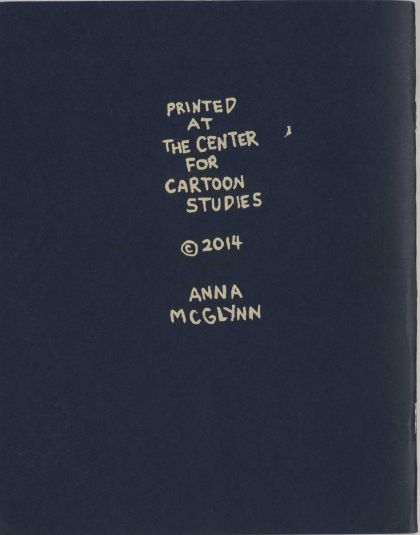 PRINTED
AT
THE CENTER
FOR
CARTOON
STUDIES
© 2014
ANNA
MCGLYNN